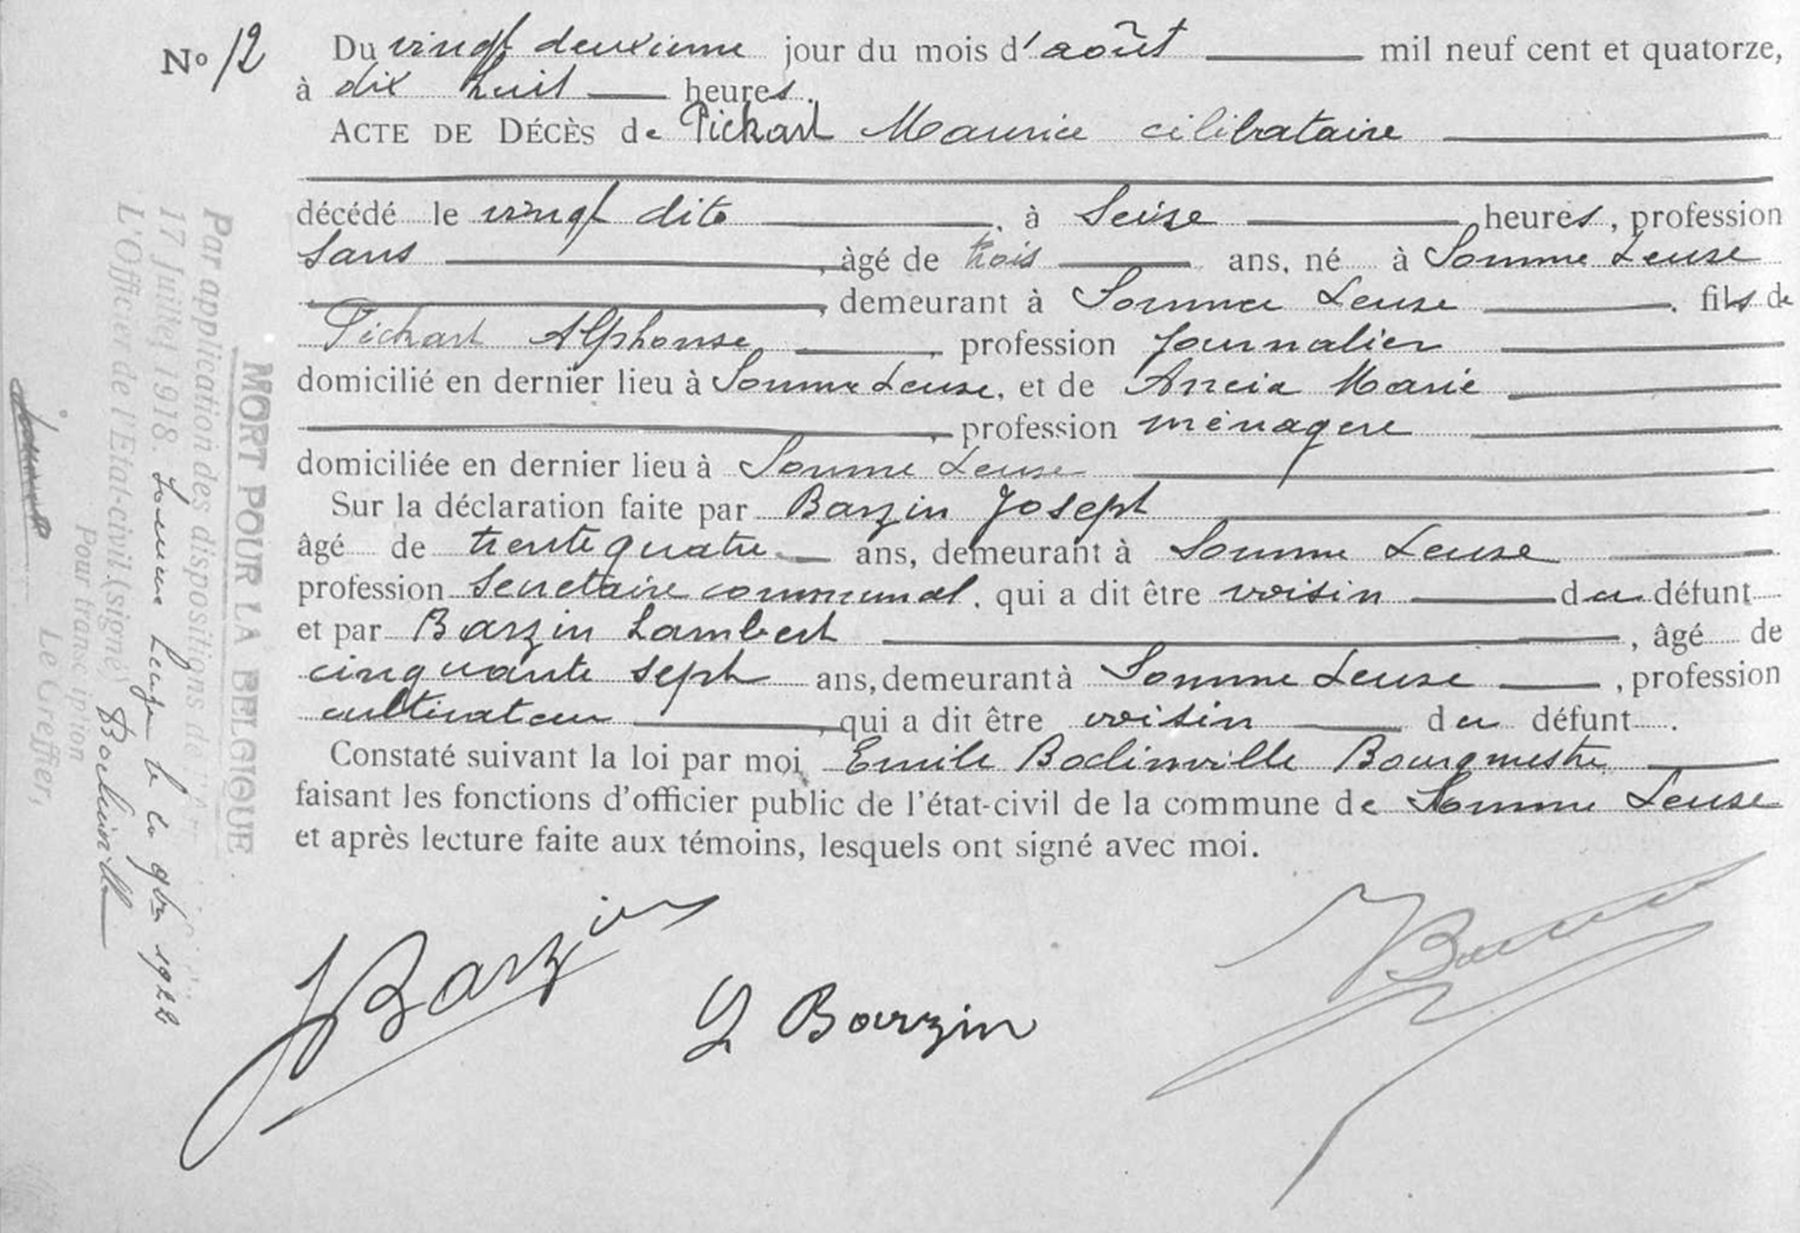 No 12 Du vingt deuxieme jour du mois d'août mil neuf cent et quatorze,
à dix huit heures.
ACTE DE DÉCÈS de Pickart Maurice célibataire
décédé le vingt dito, à Seize heures, profession
sans, âgé de trois ans, né à Somme Leuse
, demeurant à Somme Leuse. fils de
Pickart Alphonse, profession journalier
domicilié en dernier lieu à Somme Leuse, et de Marie
, profession ménagère
domiciliée en dernier lieu à Somme Leuse
Sur la déclaration faite par Barzin Joseph
âgé de trente quatre ans, demeurant à Somme Leuse
profession Secretaire communal, qui a dit être voisin du défunt
et par Barzin Lambert, âgé de
cinquante sept ans, demeurant à Somme Leuse, profession
cultivateur, qui a dit être voisin du défunt.
Constaté suivant la loi par moi Emile Bodinville Bourgmestre
faisant les fonctions d'officier public de l'état-civil de la commune de Somme Leuse
et après lecture faite aux témoins, lesquels ont signé avec moi.
J Barzin
L Barzin
MORT POUR LA BELGIQUE
Par application des dispositions de
17 Juillet 1918. Somme Leuse le 1922
L'Officier de l'Etat-civil. (signé) Bodinville
Pour transcription
Le Greffier,